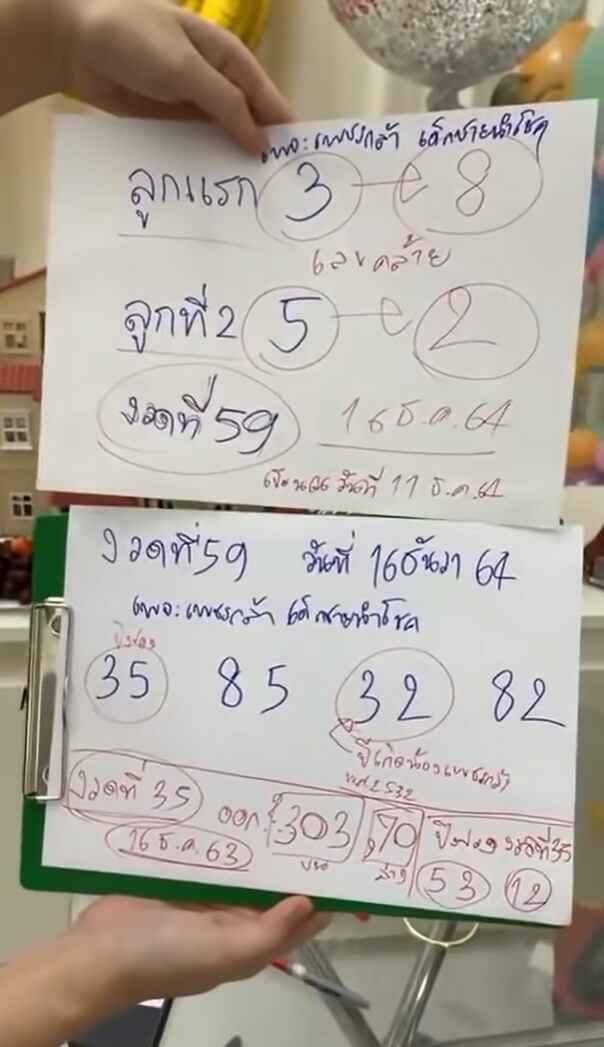 เพจ:เพชรกล้า เด็กชายนำโชค
ลูกแรก 3 8
เลขคล้าย
ลูกที่ 2 5 2
งวดที่ 59 16 ธ.ค. 64
วันที่ 11 ธ.ค. 64
งวดที่ 59 วันที่ 16 ธันวา 64
เพจ:เพชรกล้า เด็กชายนำโชค
ปิงปอง
35 85 32 82
ปีเกิดน้องเพชรกล้า
พ.ศ. 2532
งวดที่ 35 ออก 303 70 ปิงปองงวดที่ 35
16 ธ.ค. 63 บน ล่าง 53 12